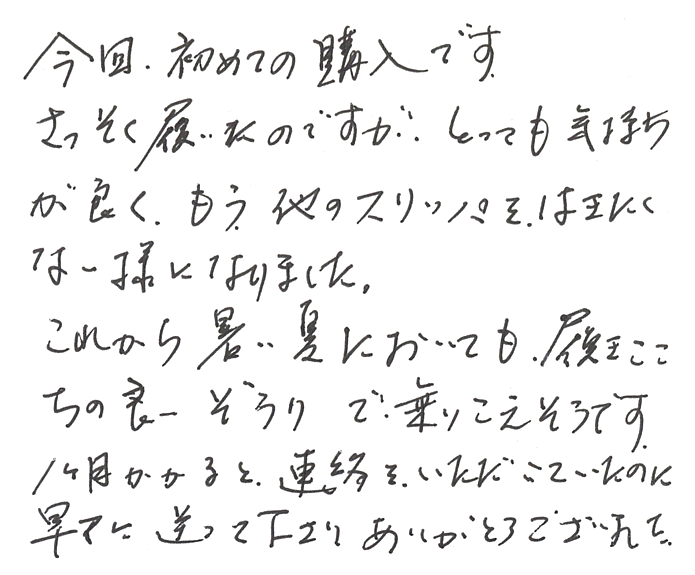 今回、初めての購入です。
さっそく履いたのですが、とっても気持ち
が良く、もう、他のスリッパを、はきたく
ない様になりました。
これから暑い夏においても、履きここ
ちの良い ぞうりで、乗りこえそうです。
1ヶ月かかると、連絡を、いただいていたのに
早々に送って下さり ありがとうございました。